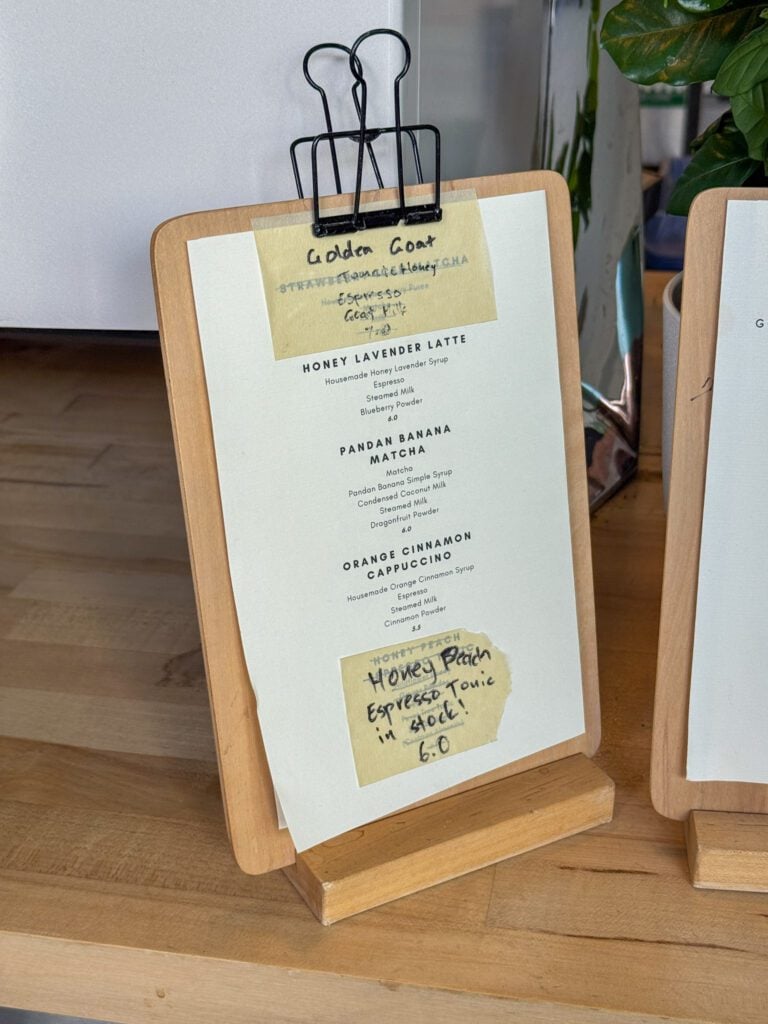 Golden Goat
STRAWBERRY MATCHA
Honey
Espresso
Goat Milk
HONEY LAVENDER LATTE
Housemade Honey Lavender Syrup
Espresso
Steamed Milk
Blueberry Powder
6.0
PANDAN BANANA
MATCHA
Matcha
Pandan Banana Simple Syrup
Condensed Coconut Milk
Steamed Milk
Dragonfruit Powder
6.0
ORANGE CINNAMON
CAPPUCCINO
Housemade Orange Cinnamon Syrup
Espresso
Steamed Milk
Cinnamon Powder
5.5
HONEY PEACH
Honey Peach
Espresso Tonic
in stock!
6.0
G